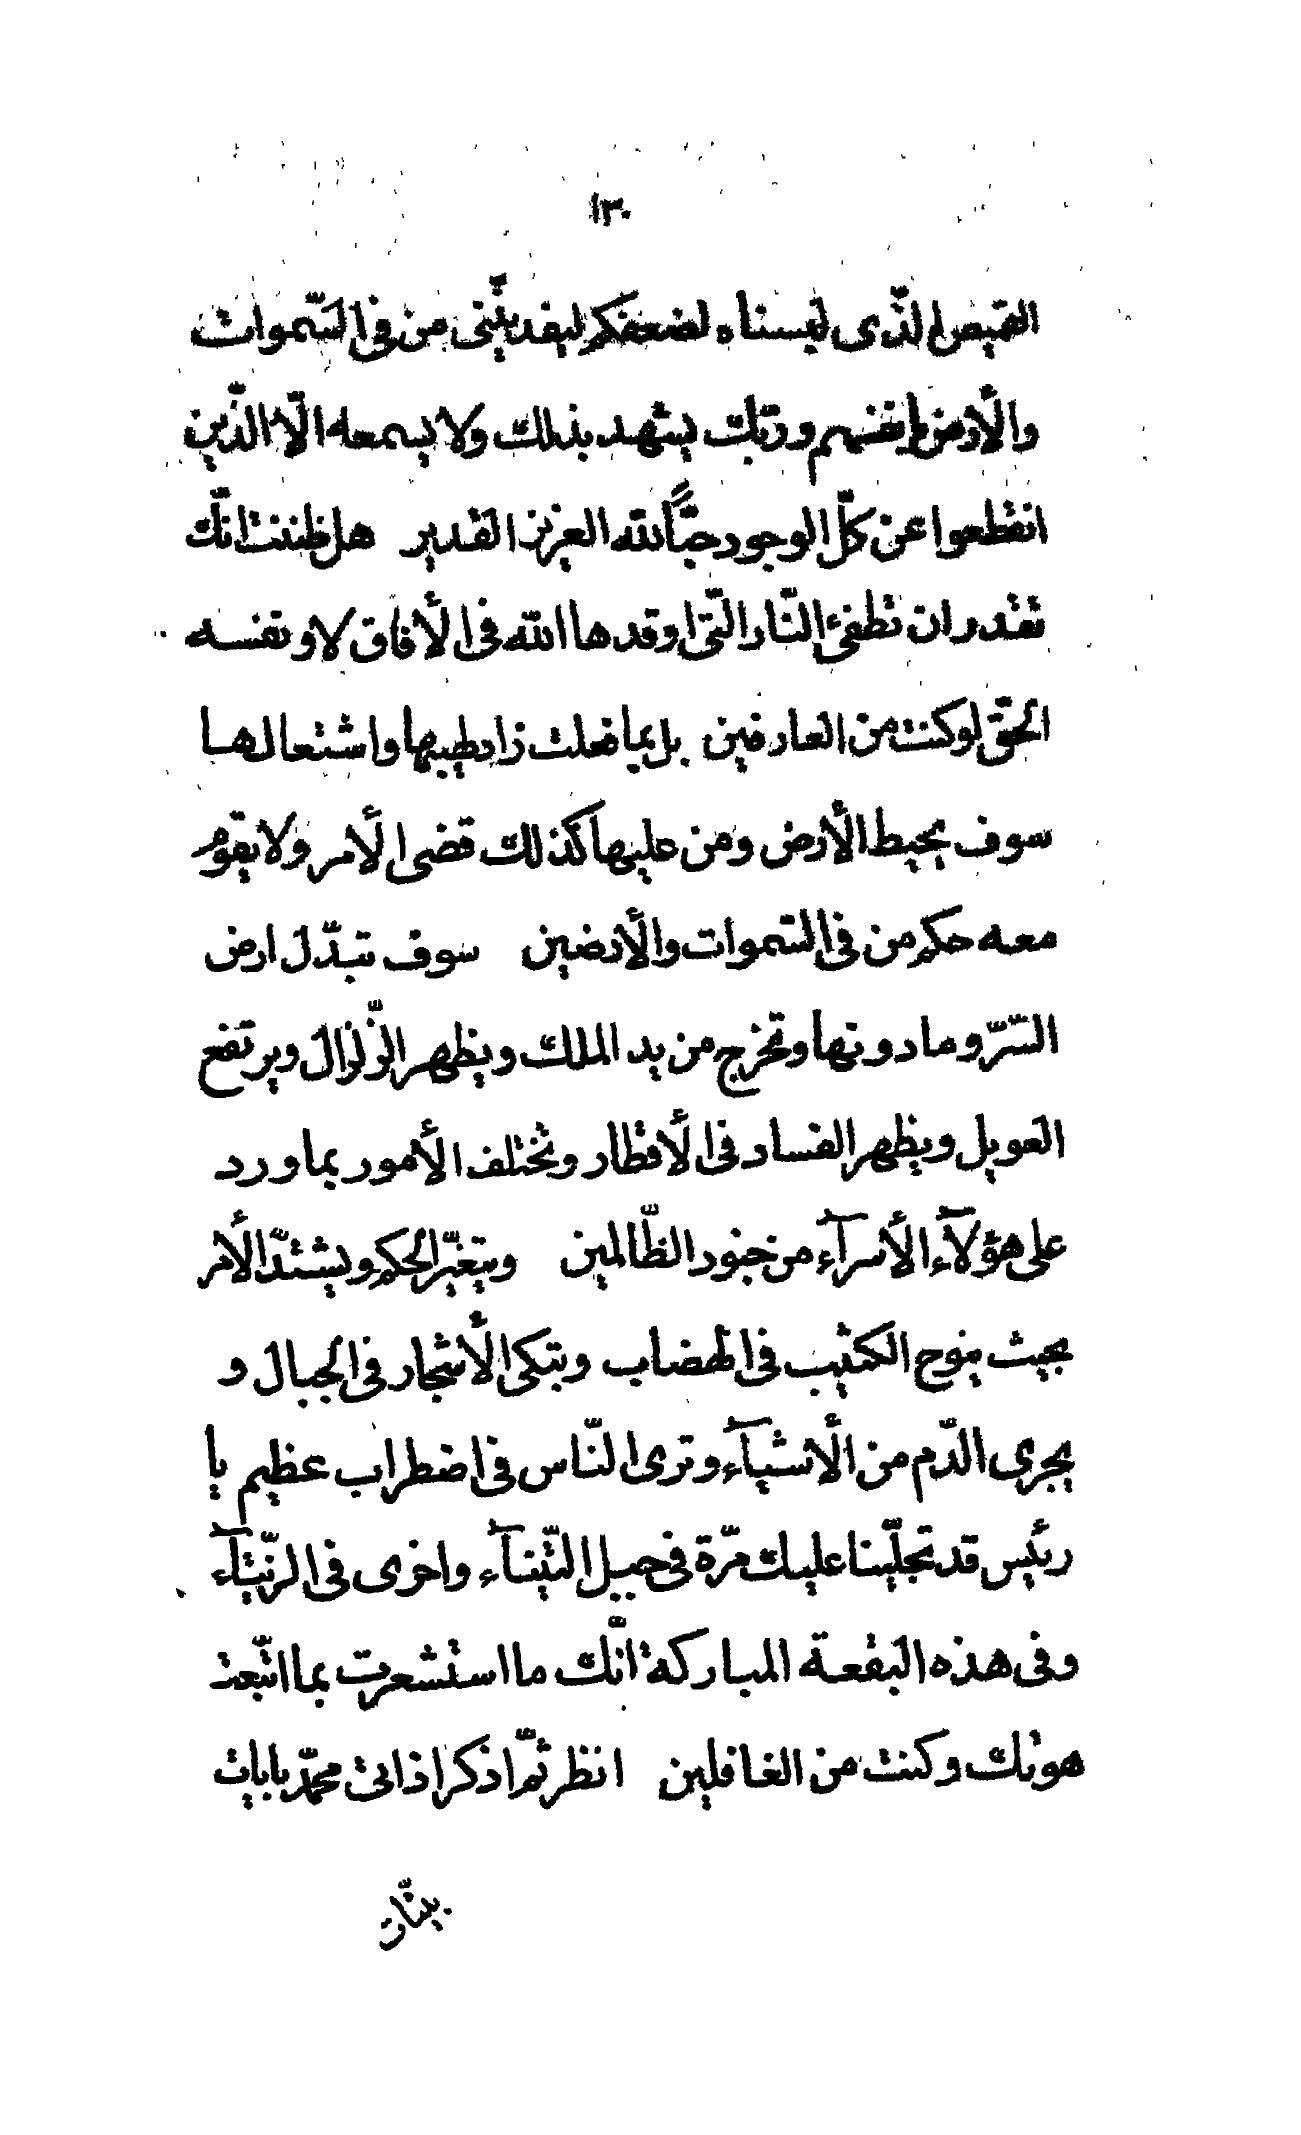 ١٣٠
القميص الّذى لبسناه لضعفكم ليفدينّنى من فى السّموات
والأرض بانفسهم وربّك يشهد بذلك ولا يسمعه الّا الّذين
انقطعوا عن كلّ الوجود حبّاً لله العزيز القدير هل ظننت انّك
تقدر ان تطفئ النّار الّتى اوقدها الله فى الأفاق لا ونفسه
الحقّ لو كنت من العارفين بل بما فعلت زاد لهيبها واشتعالها
سوف يحيط الأرض ومن عليها كذلك قضى الأمر ولا يقوم
معه حكم من فى السّموات والأرضين سوف تبدّل ارض
السّرّ وما دونها وتخرج من يد الملك ويظهر الزّلزال ويرتفع
العويل ويظهر الفساد فى الأقطار وتختلف الأمور بما ورد
على هؤلآء الأسرآء من جنود الظّالمين ويتغيّر الحكم ويشتدّ الأمر
بحيث ينوح الكثيب فى الهضاب وتبكى الأشجار فى الجبال و
يجرى الدّم من الأشيآء وترى النّاس فى اضطراب عظيم يا
رئيس قد تجلّينا عليك مرّة فى جبل التّينآء واخرى فى الزّيتآء
وفى هذه البقعة المباركة انّك ما استشعرت بما اتّبعت
هويك وكنت من الغافلين انظر ثمّ اذكر اذ اتى محمّد بايات
بيّنات